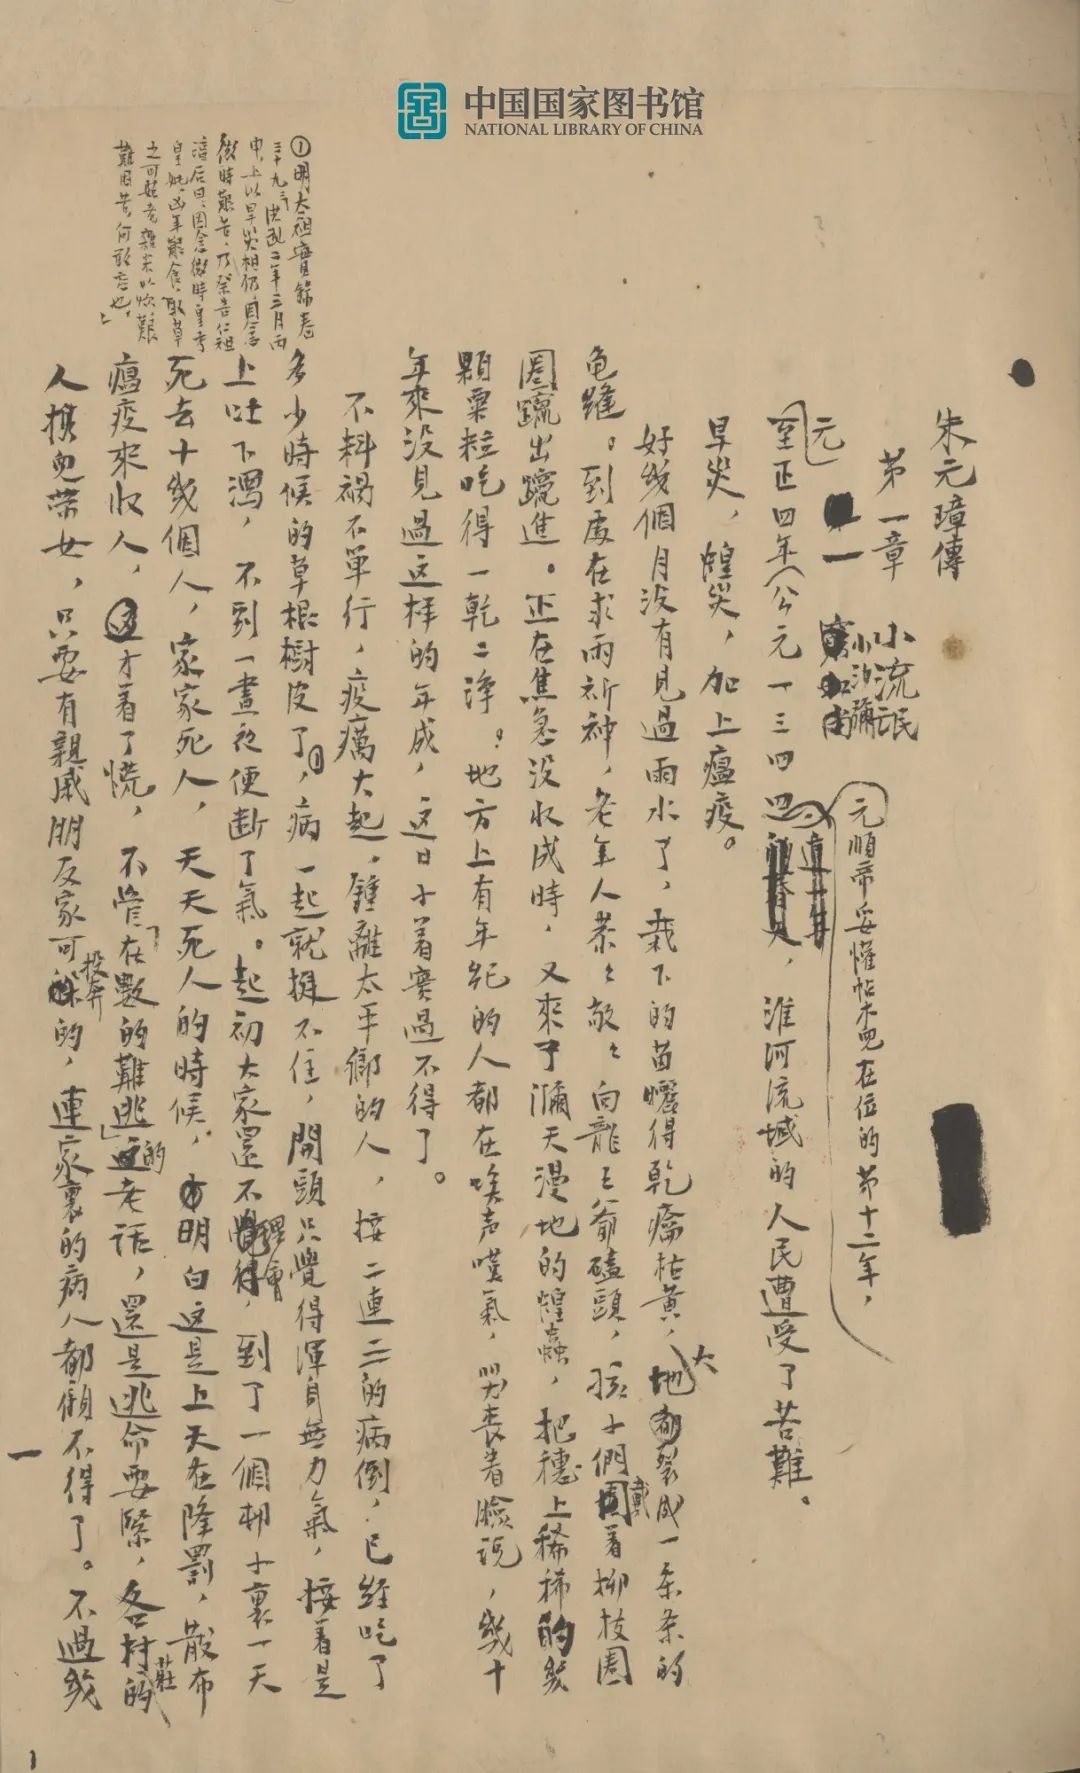 中国国家图书馆
NATIONAL LIBRARY OF CHINA
朱元璋傳
第一章 小流氓
小沙彌
一
元順帝妥懽帖木兒在位的第十二年，
元至正四年（公元一三四四），淮河流域的人民遭受了苦難。
旱災，蝗災，加上瘟疫。
好幾個月沒有見過雨水了，栽下的苗曬得乾癟枯黃，大地裂成一条条的
龟縫。到處在求雨祈神，老年人恭々敬々向龍王爺磕頭，孩子們戴着柳枝圈
圈躥出躥進。正在焦急沒收成時，又來了瀰天漫地的蝗蟲，把穗上稀稀的幾
顆粟粒吃得一乾二淨。地方上有年紀的人都在唉声嘆氣，哭喪着臉說，幾十
年來沒見過这样的年成，这日子着實過不得了。
不料禍不單行，疫癘大起，鍾離太平鄉的人，接二連三的病倒，已經吃了
多少時候的草根樹皮了①，病一起就挺不住，開頭只覺得渾身無力氣，接着是
上吐下瀉，不到一晝夜便断了氣。起初大家還不理會，到了一個村子裏一天
死去十幾個人，家家死人，天天死人的時候，明白这是上天在降罰，散布
瘟疫來收人，才着了慌，不管「在數的難逃」的老話，還是逃命要緊，各村莊的
人携兒帶女，只要有親戚朋友家可投奔的，連家裏的病人都顧不得了。不過幾
①明太祖實錄卷
三十九：洪武二年三月丙
申，上以旱災相仍，因念
微時艱苦，乃祭告仁祖
淳后曰：因念微時皇考
皇妣，凶年艱食，取草
之可茹者雜米以炊，艱
難困苦，何敢忘也。
一
1